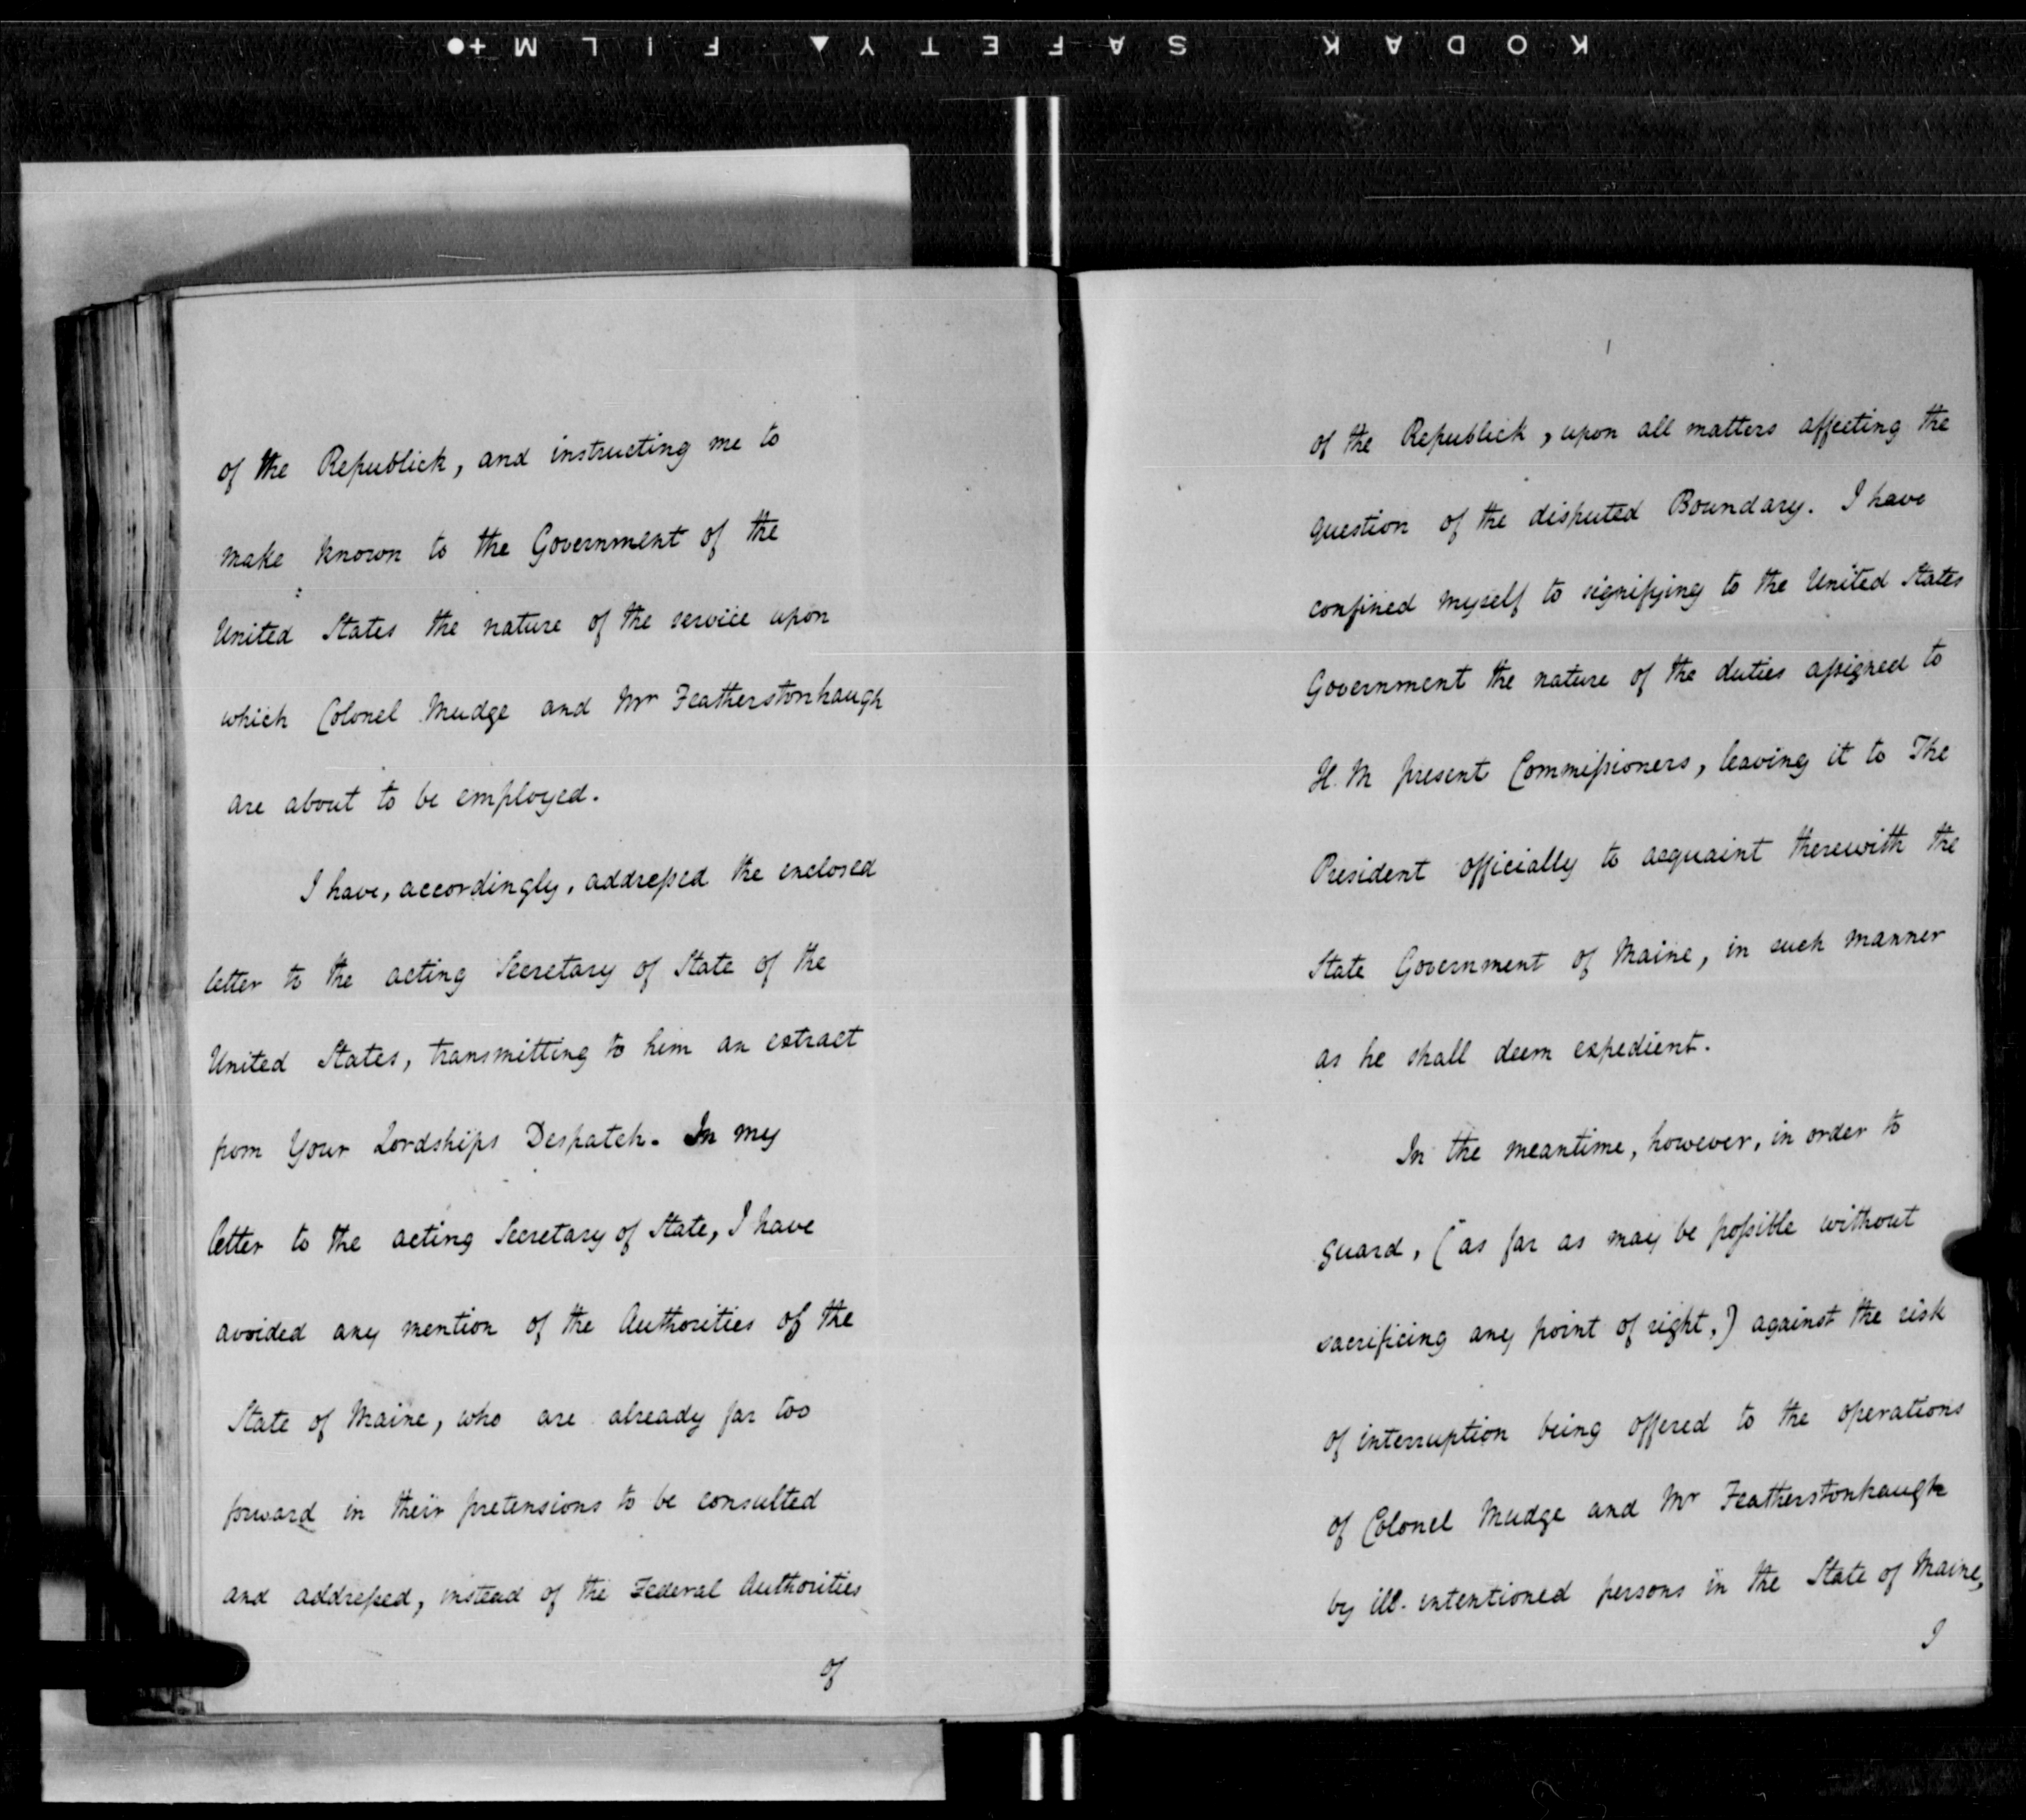 KODAK SAFETY FILM
of the Republick, and instructing me to
make known to the Government of the
United States the nature of the service upon
which Colonel Mudge and Mr Featherstonhaugh
are about to be employed.
I have, accordingly, addressed the enclosed
letter to the acting Secretary of State of the
United States, transmitting to him an extract
from Your Lordships Despatch. In my
letter to the acting Secretary of State, I have
avoided any mention of the Authorities of the
State of Maine, who are already far too
forward in their pretensions to be consulted
and addressed, instead of the Federal Authorities
of
of the Republick, upon all matters affecting the
question of the disputed Boundary. I have
confined myself to signifying to the United States
Government the nature of the duties assigned to
H. M present Commissioners, leaving it to The
President officially to acquaint therewith the
State Government of Maine, in such manner
as he shall deem expedient.
In the meantime, however, in order to
guard, (as far as may be possible without
sacrificing any point of right,) against the risk
of interruption being offered to the operations
of Colonel Mudge and Mr Featherstonhaugh
by ill-intentioned persons in the State of Maine,
I